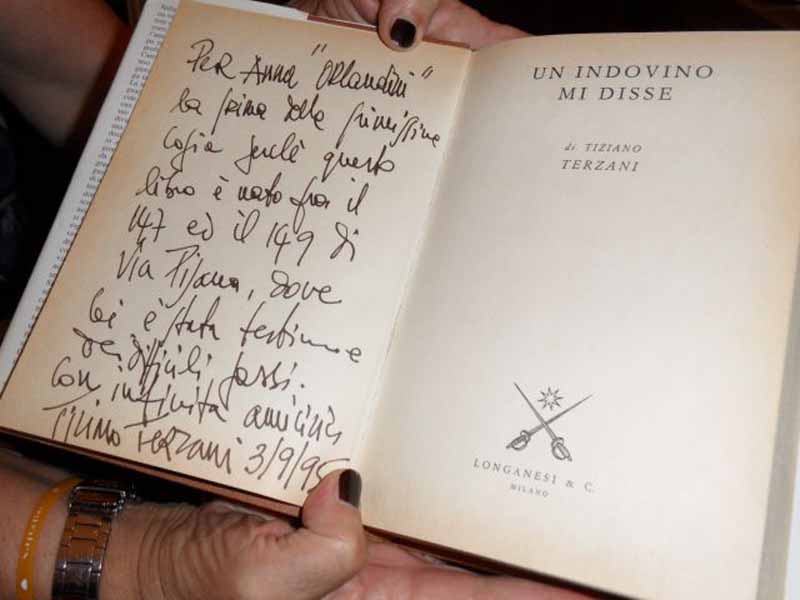 Per Anna "Orlandini"
la prima delle primissime
copie perché questo
libro è nato fra il
147 ed il 149 di
Via Pisana, dove
lei è stata testimone
dei difficili passi.
Con infinita amicizia
Tiziano Terzani 3/9/95
UN INDOVINO
MI DISSE
di TIZIANO
TERZANI
LONGANESI & C.
MILANO